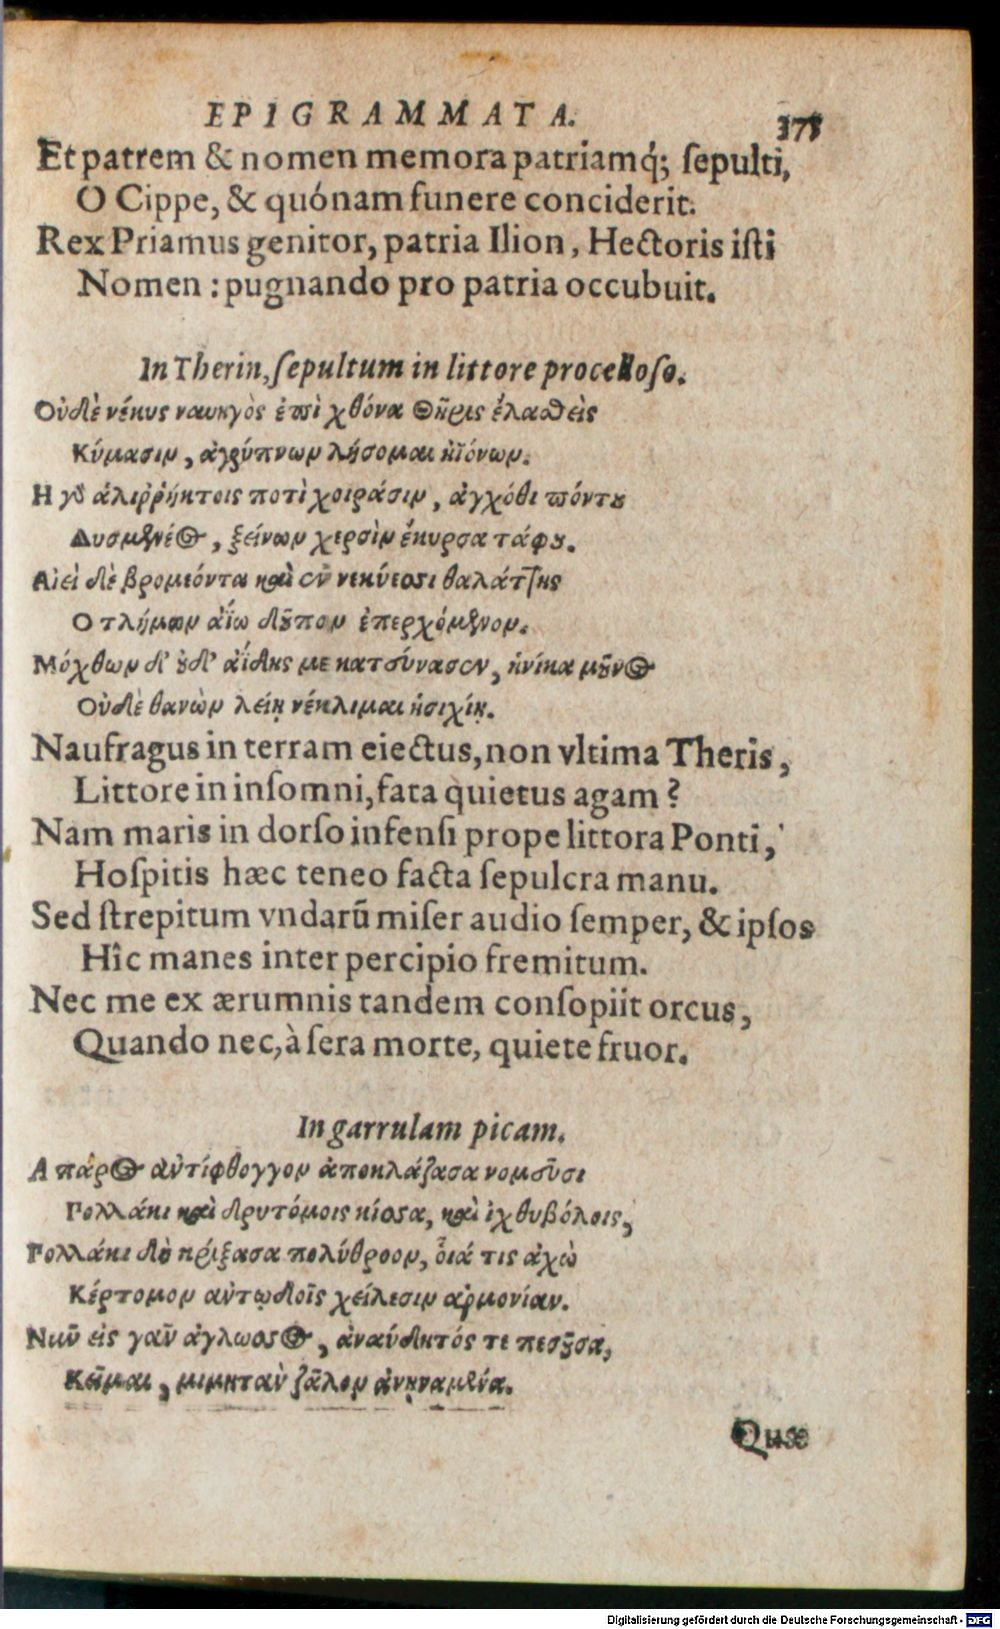 EPIGRAMMATA. 175
Et patrem & nomen memora patriamq́; ſepulti,
O Cippe, & quónam funere conciderit.
Rex Priamus genitor, patria Ilion, Hectoris iſti
Nomen : pugnando pro patria occubuit.
In Therin, ſepultum in littore procelloſo.
Οὐδὲ νέκυς ναυηγὸς ἐπὶ χθόνα Θῆρις ἐλαθεὶς
Κύμασιν, ἀγρύπνων λήσομαι ἠϊόνων.
Η γὸ ἁλιῤῥήκτοις ποτὶ χοιράσιν, ἀγχόθι πόντου
Δυσμενέος, ξείνων χερσὶν ἔκυρσα τάφου.
Αἰεὶ δὲ βρομέοντα καὶ ἐν νεκύεσσι θαλάττης
Ο τλήμων ἀΐω δοῦπον ἐπερχόμενον.
Μόχθων δ' οὐδ' ἀΐδης με κατεύνασεν, ἡνίκα μοῦνος
Οὐδὲ θανὼν λείῃ νέκλιμαι ἡσιχίῃ.
Naufragus in terram eiectus, non vltima Theris,
Littore in inſomni, fata quietus agam?
Nam maris in dorſo infenſi prope littora Ponti,
Hoſpitis hæc teneo facta ſepulcra manu.
Sed ſtrepitum vndarũ miſer audio ſemper, & ipſos
Hîc manes inter percipio fremitum.
Nec me ex ærumnis tandem conſopiit orcus,
Quando nec, à ſera morte, quiete fruor.
In garrulam picam.
Α πάρος ἀντίφθογγον ἀποκλάζασα νομεῦσι
Πολλάκι καὶ δρυτόμοις κίσσα, καὶ ἰχθυβόλοις,
Πολλάκι δὲ κρίξασα πολύθροον, οἷά τις ἀχὼ
Κέρτομον ἀντῳδοῖς χείλεσιν ἁρμονίαν.
Νῦν εἰς γᾶν ἄγλωσσος, ἀναύδητός τε πεσοῦσα,
Κεῖμαι, μιμητὰν ζᾶλον ἀνῃναμένα.
Quæ
Digitalisierung gefördert durch die Deutsche Forschungsgemeinschaft - DFG